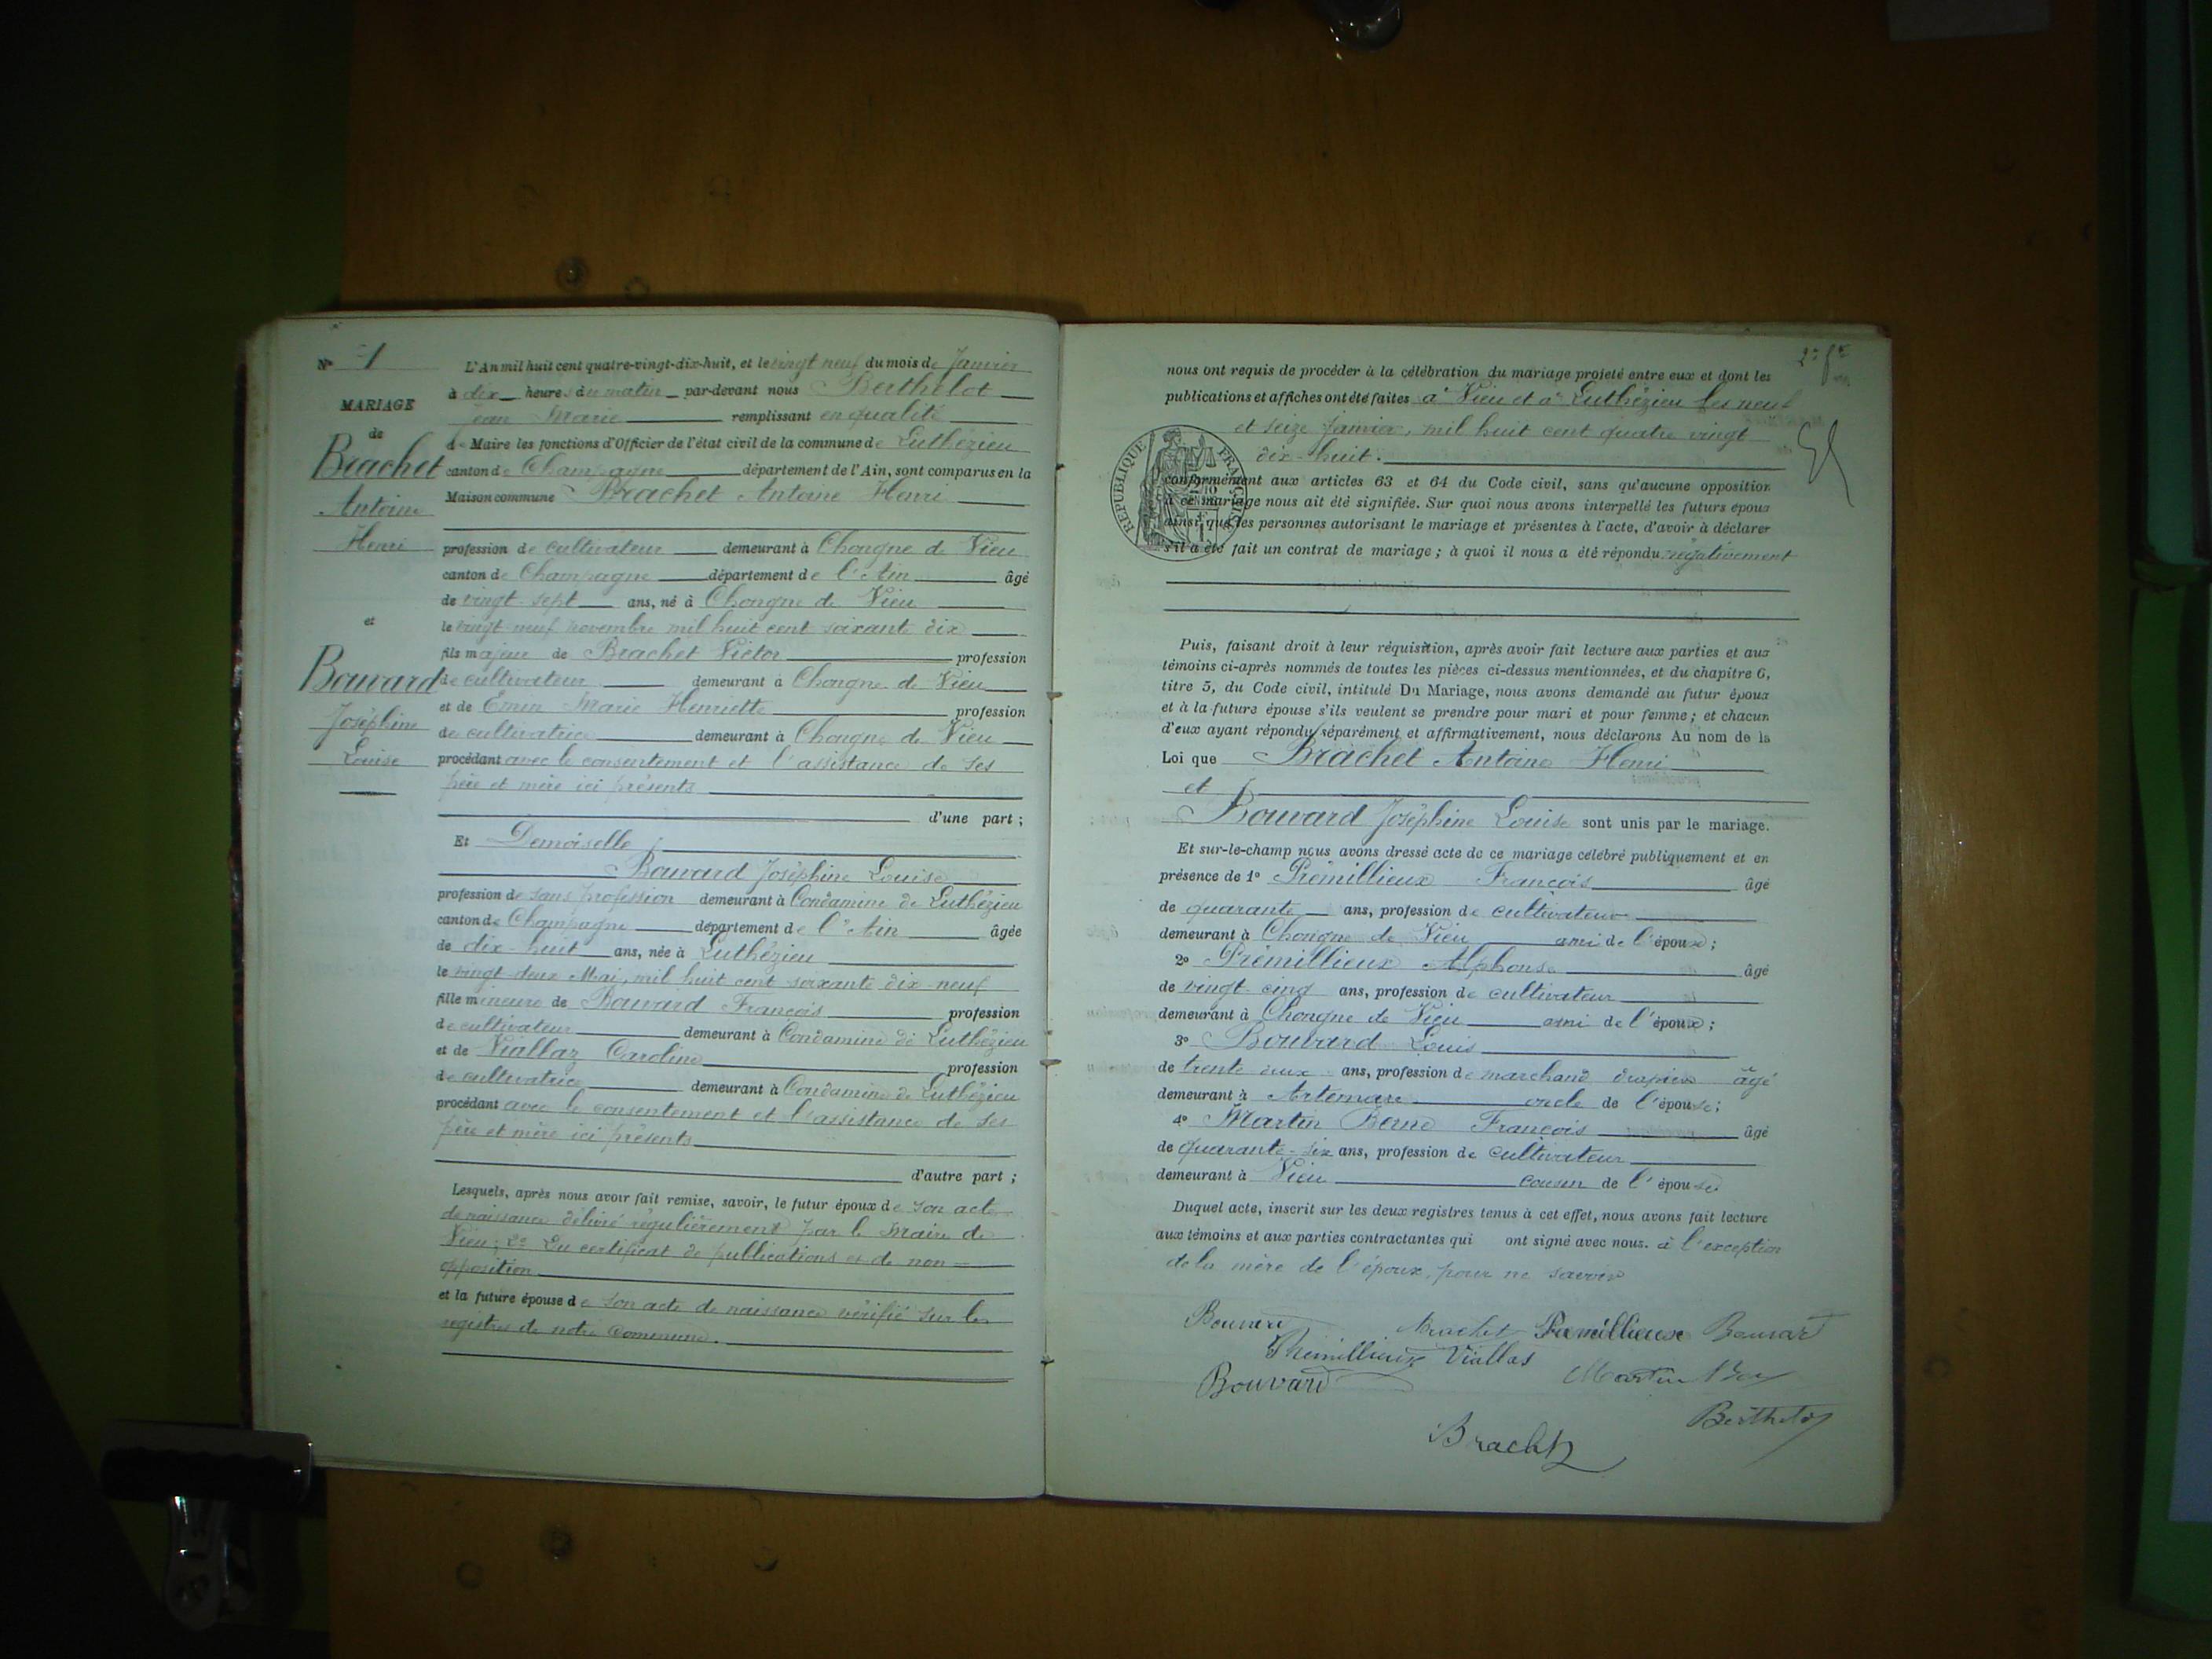 N° 1
MARIAGE
de
Brachet
Antoine
Henri
et
Bouvard
Joséphine
Louise
L'An mil huit cent quatre-vingt-dix-huit, et le vingt neuf du mois de Janvier
à dix heures du matin par-devant nous Berthelot
jean Marie remplissant en qualité
de Maire les fonctions d'Officier de l'état civil de la commune de Luthézieu
canton de Champagne département de l'Ain, sont comparus en la
Maison commune Brachet Antoine Henri
profession de cultivateur demeurant à Chongne de Vieu
canton de Champagne département de l'Ain âgé
de vingt-sept ans, né à Chongne de Vieu
le vingt neuf novembre mil huit cent soixante dix
fils majeur de Brachet Victor profession
de cultivateur demeurant à Chongne de Vieu
et de Emin Marie Henriette profession
de cultivatrice demeurant à Chongne de Vieu
procédant avec le consentement et l'assistance de ses
père et mère ici présents
d'une part ;
Et Demoiselle
Bouvard Joséphine Louise
profession de sans profession demeurant à Condamine de Luthézieu
canton de Champagne département de l'Ain âgée
de dix-huit ans, née à Luthézieu
le vingt-deux Mai, mil huit cent soixante dix-neuf
fille mineure de Bouvard François profession
de cultivateur demeurant à Condamine de Luthézieu
et de Viallaz Caroline profession
de cultivatrice demeurant à Condamine de Luthézieu
procédant avec le consentement et l'assistance de ses
père et mère ici présents
d'autre part ;
Lesquels, après nous avoir fait remise, savoir, le futur époux de son acte
de naissance délivré régulièrement par le Maire de
Vieu; 2° Du certificat de publications et de non
opposition
et la future épouse de son acte de naissance vérifié sur les
registres de notre Commune.
nous ont requis de procéder à la célébration du mariage projeté entre eux et dont les
publications et affiches ont été faites à Vieu et à Luthézieu les neuf
et seize Janvier, mil huit cent quatre vingt
dix-huit.
RÉPUBLIQUE FRANÇAISE
conformément aux articles 63 et 64 du Code civil, sans qu'aucune opposition
à ce mariage nous ait été signifiée. Sur quoi nous avons interpellé les futurs époux
ainsi que les personnes autorisant le mariage et présentes à l'acte, d'avoir à déclarer
s'il a été fait un contrat de mariage ; à quoi il nous a été répondu négativement
Puis, faisant droit à leur réquisition, après avoir fait lecture aux parties et aux
témoins ci-après nommés de toutes les pièces ci-dessus mentionnées, et du chapitre 6,
titre 5, du Code civil, intitulé Du Mariage, nous avons demandé au futur époux
et à la future épouse s'ils veulent se prendre pour mari et pour femme ; et chacun
d'eux ayant répondu séparément et affirmativement, nous déclarons Au nom de la
Loi que Brachet Antoine Henri
et
Bouvard Joséphine Louise sont unis par le mariage.
Et sur-le-champ nous avons dressé acte de ce mariage célébré publiquement et en
présence de 1° Prémillieux François âgé
de quarante ans, profession de cultivateur
demeurant à Chongne de Vieu ami de l'époux ;
2° Prémillieux Alphonse âgé
de vingt-cinq ans, profession de cultivateur
demeurant à Chongne de Vieu ami de l'époux ;
3° Bouvard Louis
de trente deux ans, profession de marchand drapier âgé
demeurant à Artemare oncle de l'épouse ;
4° Martin Berne François âgé
de quarante-six ans, profession de cultivateur
demeurant à Vieu cousin de l'épouse
Duquel acte, inscrit sur les deux registres tenus à cet effet, nous avons fait lecture
aux témoins et aux parties contractantes qui ont signé avec nous. à l'exception
de la mère de l'époux, pour ne savoir
Bouvard Brachet Prémillieux Bouvard
Prémillieux Viallas
Bouvard Martin
Berthelot
Brachet